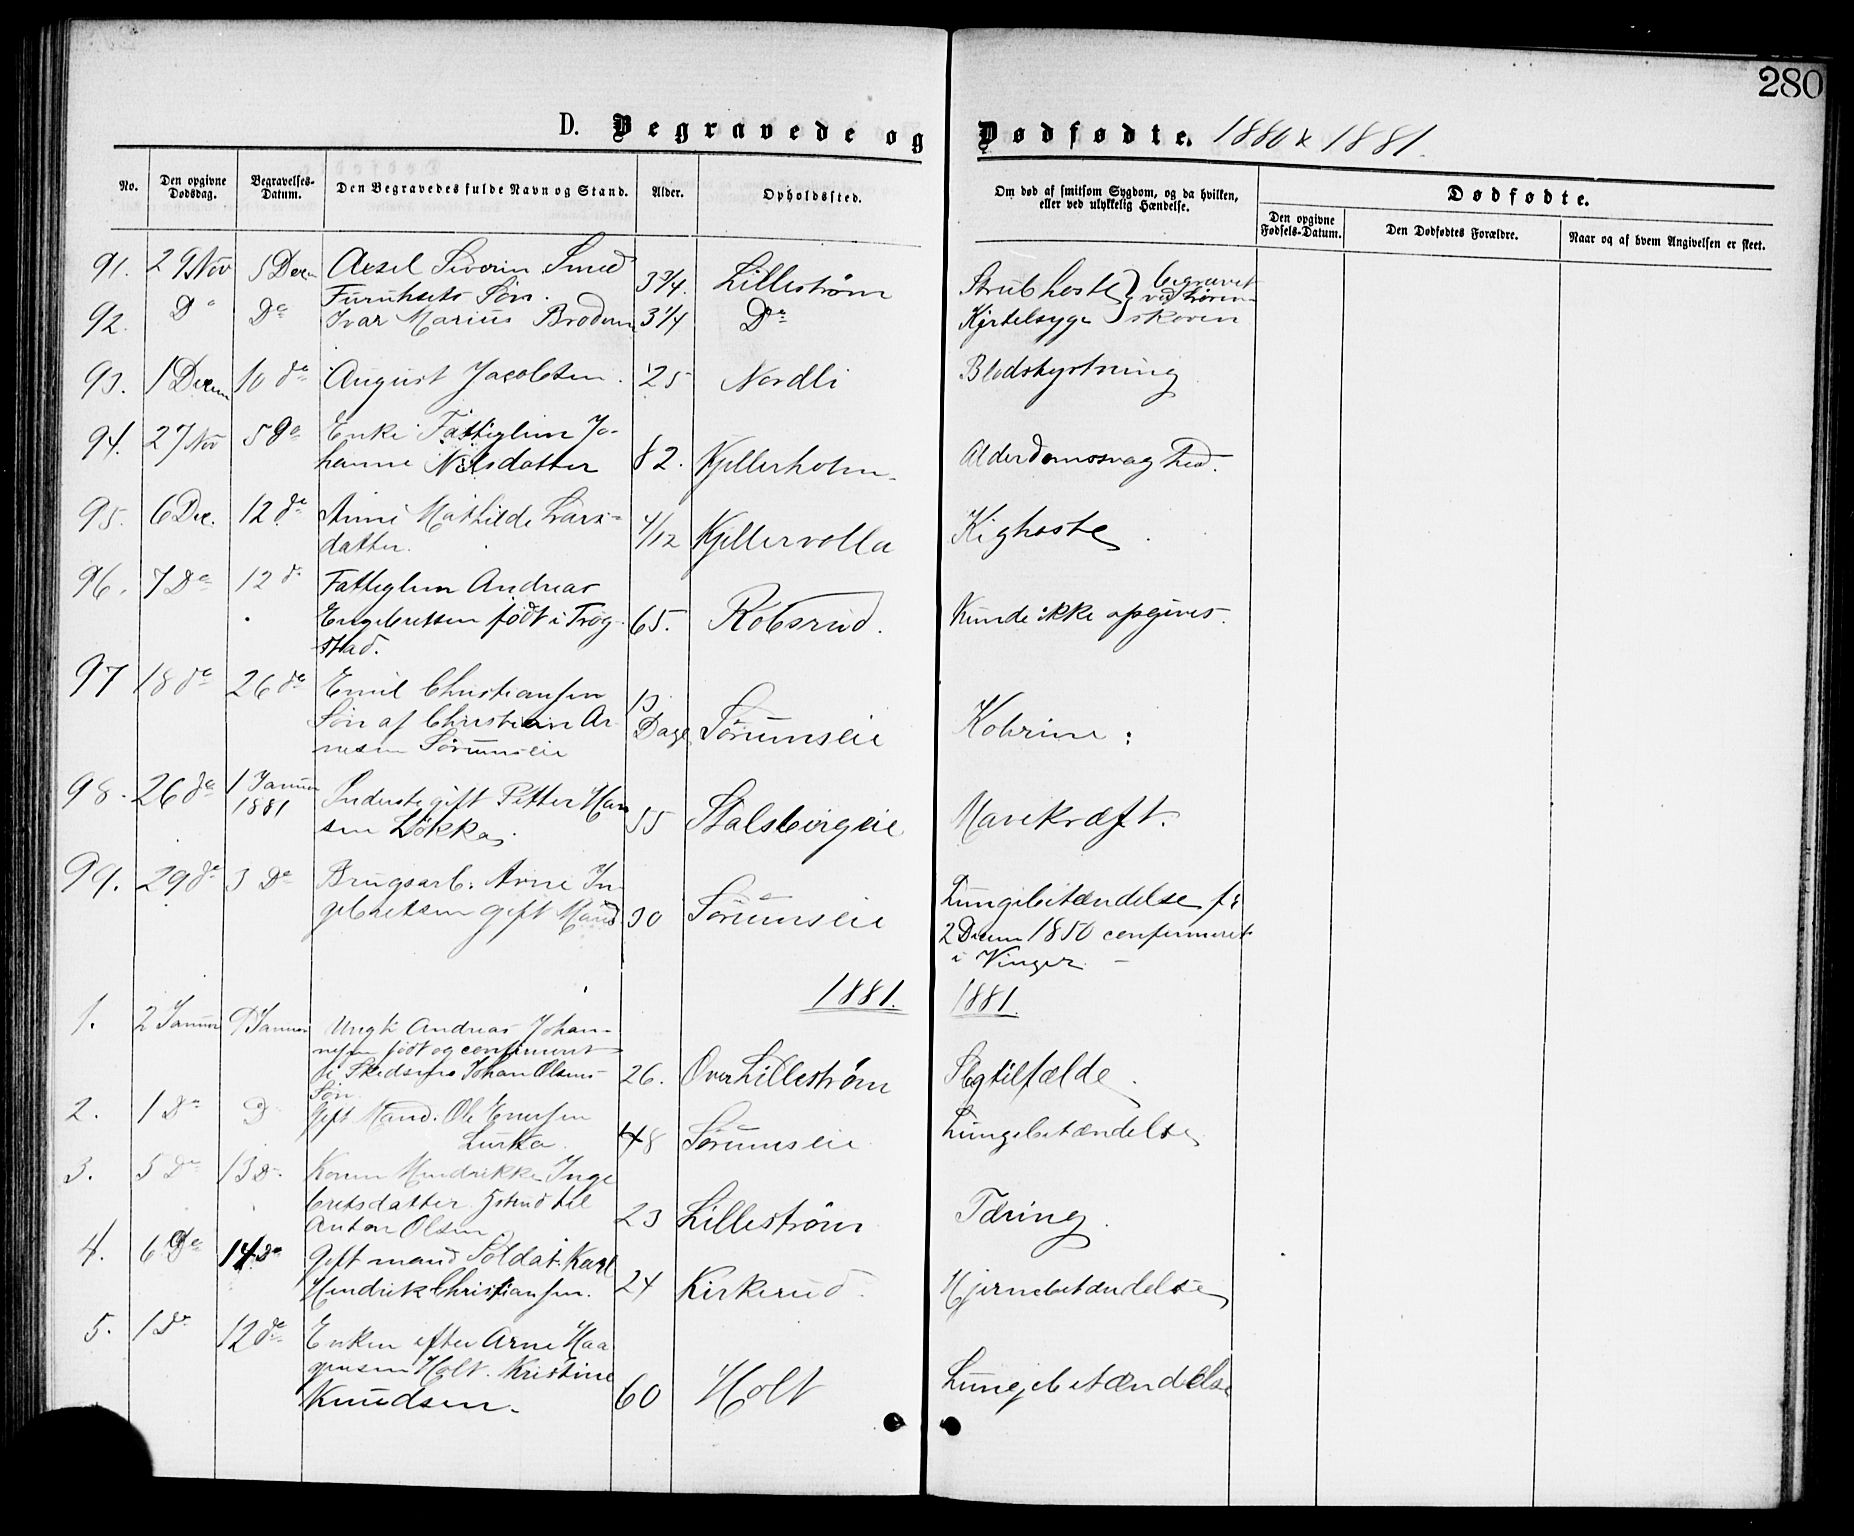 280
D. Begravede og Dødfødte. 1880 & 1881.
No. Den opgivne Dødsdag. Begravelses-Datum. Den Begravedes fulde Navn og Stand. Alder. Opholdssted. Om død af smitsom Sygdom, og da hvilken, eller ved ulykkelig Hændelse. Dødfødte.
Den opgivne Fødsels-Datum. Den Dødfødtes Forældre. Naar og af hvem Angivelsen er skeet.
91. 29 Nov 5 Decm Axel Severin Smed 3 3/4. Lillestrøm Strubehoste begravet
Furuhsets Søn. ved
92. Do Do Ivar Marius Broderen 3 1/4 Do Kjertelsyge skoven
93. 1 Decem 10 do August Jacobsen. 25 Nordli Blodstyrtning
94. 27 Nov 5 do Enke Fattiglem Jo-
hanne Nilsdatter 82. Kjellerholen. Alderdomssvaghed.
95. 6 Dec. 12 do Anne Mathilde Lars-
datter. 4/12 Kjellervolla Kighoste
96. 7 Do 12 d. Fattiglem Andreas
Engebretsen født i Trøg- 65. Robsrud. Kunde ikke opgives.
stad.
97 18 do 26 do Emil Christiansen 13
Søn af Christian Ar- Dage Sørumseie Kobrine:
nesen Sørumseie
98. 26 do 1 Januar 1881 Inderste gift Petter Han
sen Løkka 55 Stalsbergeie Mavekræft.
99. 29 do 3 Do Brugsarb: Arne In-
gebretsen gift Mand 30 Sørumseie Lungebetændelse f:
2 Decem 1850 confirmeret
i Vinger. -
1881. 1881.
1. 2 Januar 9 Januar Ungk Andreas Johan-
nesen født og confirmeret
i Skedsmo Johan Olsens 26. Over Lillestrøm Slagtilfælde.
Søn.
2. 1 Do D Gift Mand. Ole Enersen
Lurka. 48 Sørumseie Lungebetændelse
3. 5 Do 13 D. Karen Hendrikke Inge
bretsdatter Hstrud til 23 Lillestrøm Tæring.
Anton Olsen
4. 6 Do 14 Do Gift mand Soldat. Karl
Hendrik Christiansen. 24 Kirkerud. Hjernebetændelse
5. 1 Do 12 do Enken efter Arne Haa
gensen Holt. Kristine
Knudsen. 60 Holt Lungebetændelse